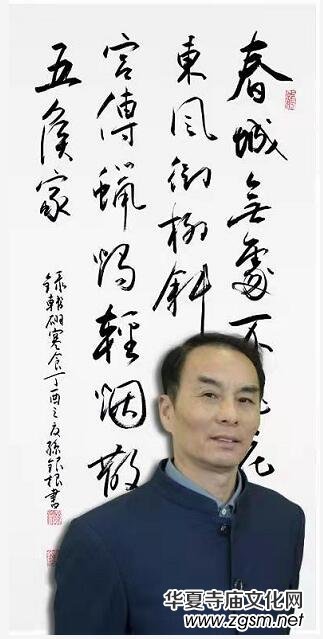 春城無處不
東風御柳斜
宮傳蠟燭輕烟散
五侯家
錄韓翃寒食丁酉之夏孫銀根書
华夏寺庙文化网
www.zgsm.net